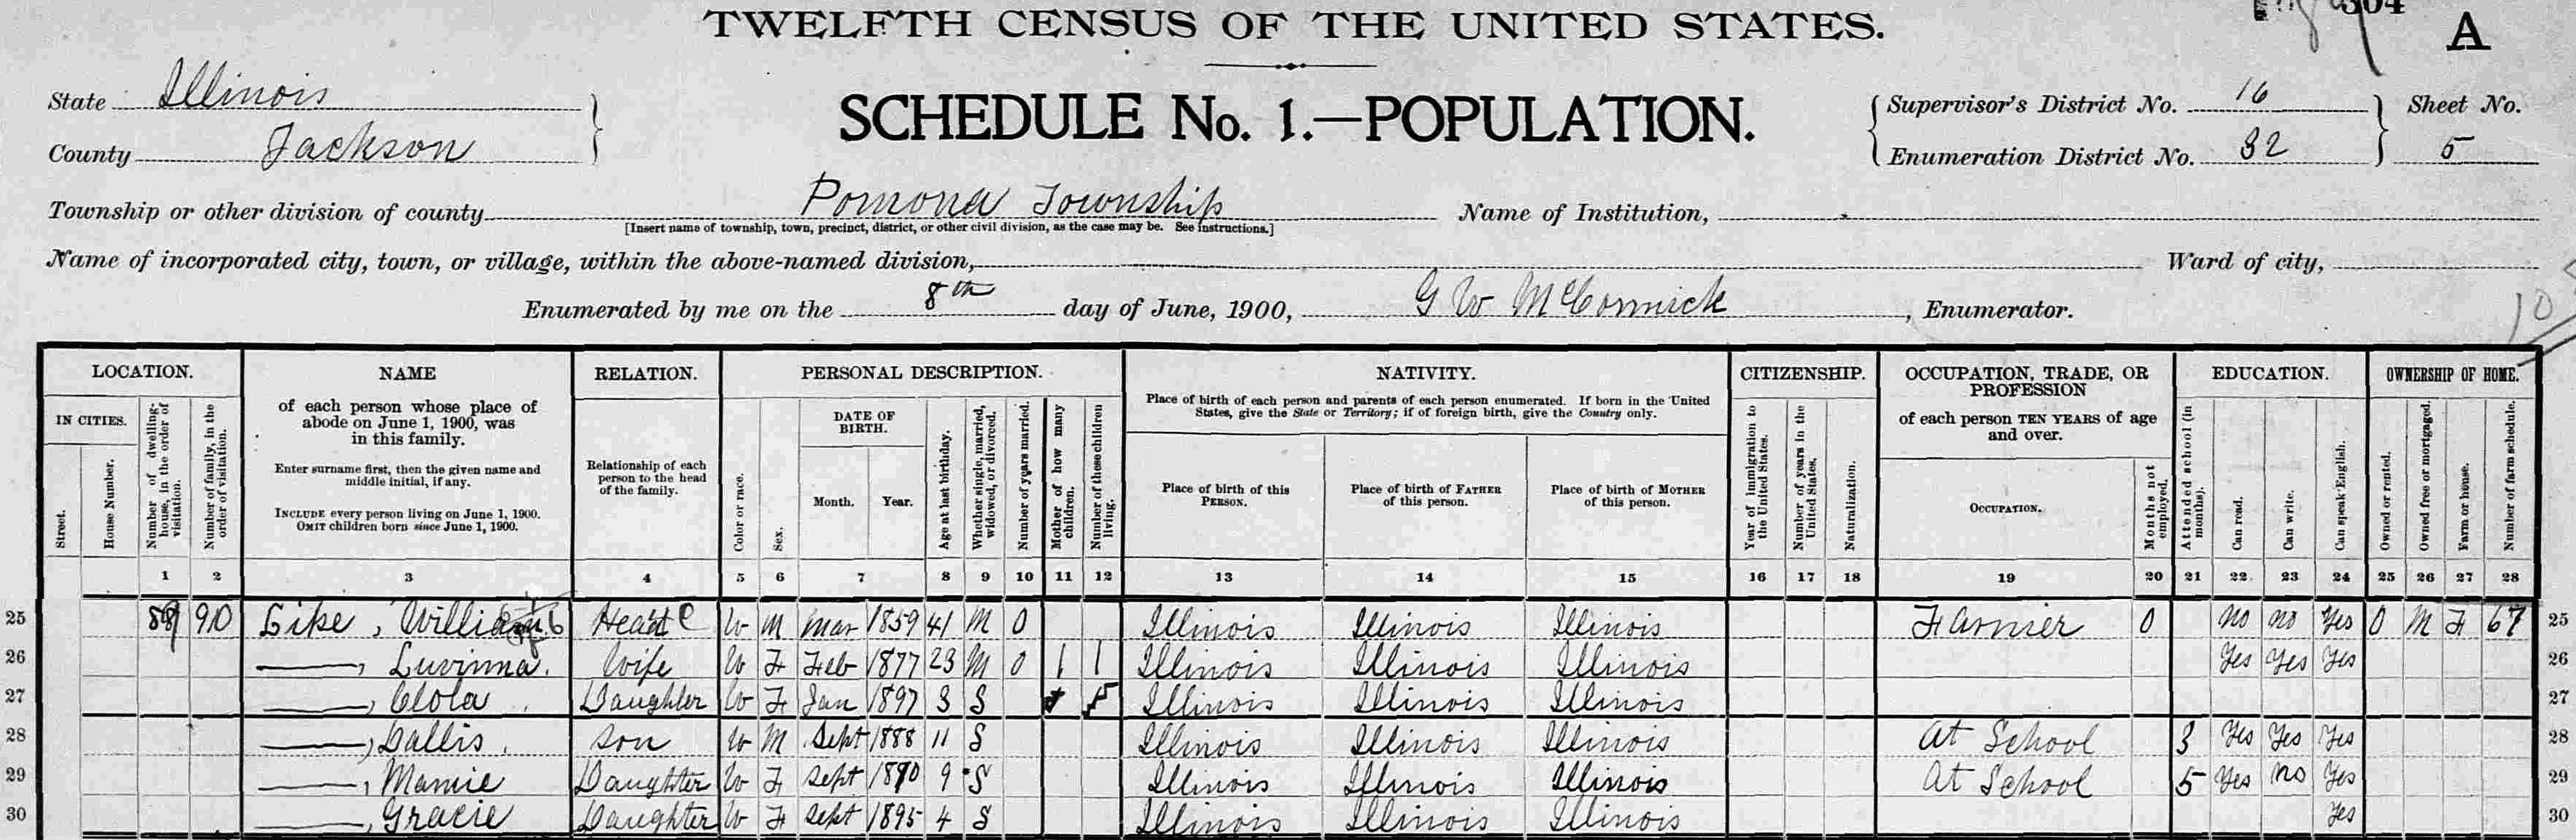 304
A
TWELFTH CENSUS OF THE UNITED STATES.
State Illinois
County Jackson
SCHEDULE No. 1.—POPULATION.
Supervisor's District No. 16
Enumeration District No. 32
Sheet No.
5
Township or other division of county Pomona Township
[Insert name of township, town, precinct, district, or other civil division, as the case may be. See instructions.]
Name of Institution,
Name of incorporated city, town, or village, within the above-named division,
Ward of city,
Enumerated by me on the 8th day of June, 1900, G W McCormick, Enumerator.
10
LOCATION.
IN CITIES.
Street.
House Number.
Number of dwelling-house, in the order of visitation.
Number of family, in the order of visitation.
NAME
of each person whose place of
abode on June 1, 1900, was
in this family.
Enter surname first, then the given name and
middle initial, if any.
INCLUDE every person living on June 1, 1900.
OMIT children born since June 1, 1900.
RELATION.
Relationship of each
person to the head
of the family.
PERSONAL DESCRIPTION.
Color or race.
Sex.
DATE OF
BIRTH.
Month.
Year.
Age at last birthday.
Whether single, married, widowed, or divorced.
Number of years married.
Mother of how many children.
Number of these children living.
NATIVITY.
Place of birth of each person and parents of each person enumerated. If born in the United
States, give the State or Territory; if of foreign birth, give the Country only.
Place of birth of this
PERSON.
Place of birth of FATHER
of this person.
Place of birth of MOTHER
of this person.
CITIZENSHIP.
Year of immigration to the United States.
Number of years in the United States.
Naturalization.
OCCUPATION, TRADE, OR
PROFESSION
of each person TEN YEARS of age
and over.
OCCUPATION.
Months not employed.
EDUCATION.
Attended school (in months).
Can read.
Can write.
Can speak English.
OWNERSHIP OF HOME.
Owned or rented.
Owned free or mortgaged.
Farm or house.
Number of farm schedule.
1 2 3 4 5 6 7 8 9 10 11 12 13 14 15 16 17 18 19 20 21 22 23 24 25 26 27 28
25 89 90 Lipe, William Head W M Mar 1859 41 M 0 Illinois Illinois Illinois Farmer 0 no no Yes O M F 67 25
26 ——, Luvinna. Wife W F Feb 1877 23 M 0 1 1 Illinois Illinois Illinois Yes Yes Yes 26
27 ——, Clola Daughter W F Jan 1897 3 S Illinois Illinois Illinois 27
28 ——, Dallis. Son W M Sept 1888 11 S Illinois Illinois Illinois At School 3 Yes Yes Yes 28
29 ——, Mamie Daughter W F Sept 1890 9 S Illinois Illinois Illinois At School 5 Yes no Yes 29
30 ——, Gracie Daughter W F Sept 1895 4 S Illinois Illinois Illinois Yes 30